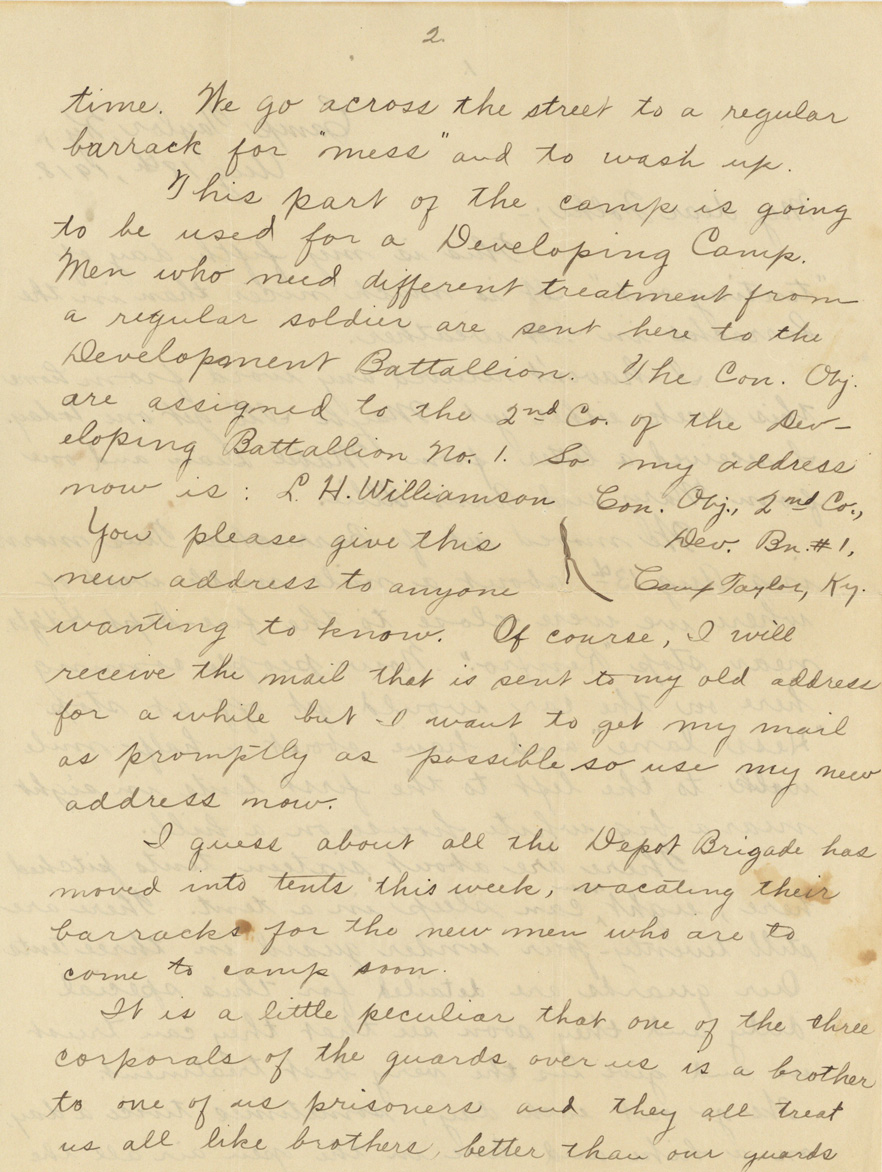 2.
time. We go across the street to a regular
barrack for "mess" and to wash up.
This part of the camp is going
to be used for a Developing Camp.
Men who need different treatment from
a regular soldier are sent here to the
Development Battallion. The Con. Obj.
are assigned to the 2nd Co. of the Dev-
eloping Battallion No. 1. So my address
now is: L. H. Williamson Con. Obj., 2nd Co.,
You please give this Dev. Bn. #1,
new address to anyone Camp Taylor, Ky.
wanting to know. Of course, I will
receive the mail that is sent to my old address
for a while but I want to get my mail
as promptly as possible so use my new
address now.
I guess about all the Depot Brigade has
moved into tents this week, vacating their
barracks for the new men who are to
come to camp soon.
It is a little peculiar that one of the three
corporals of the guards over us is a brother
to one of us prisoners and they all treat
us all like brothers, better than our guards